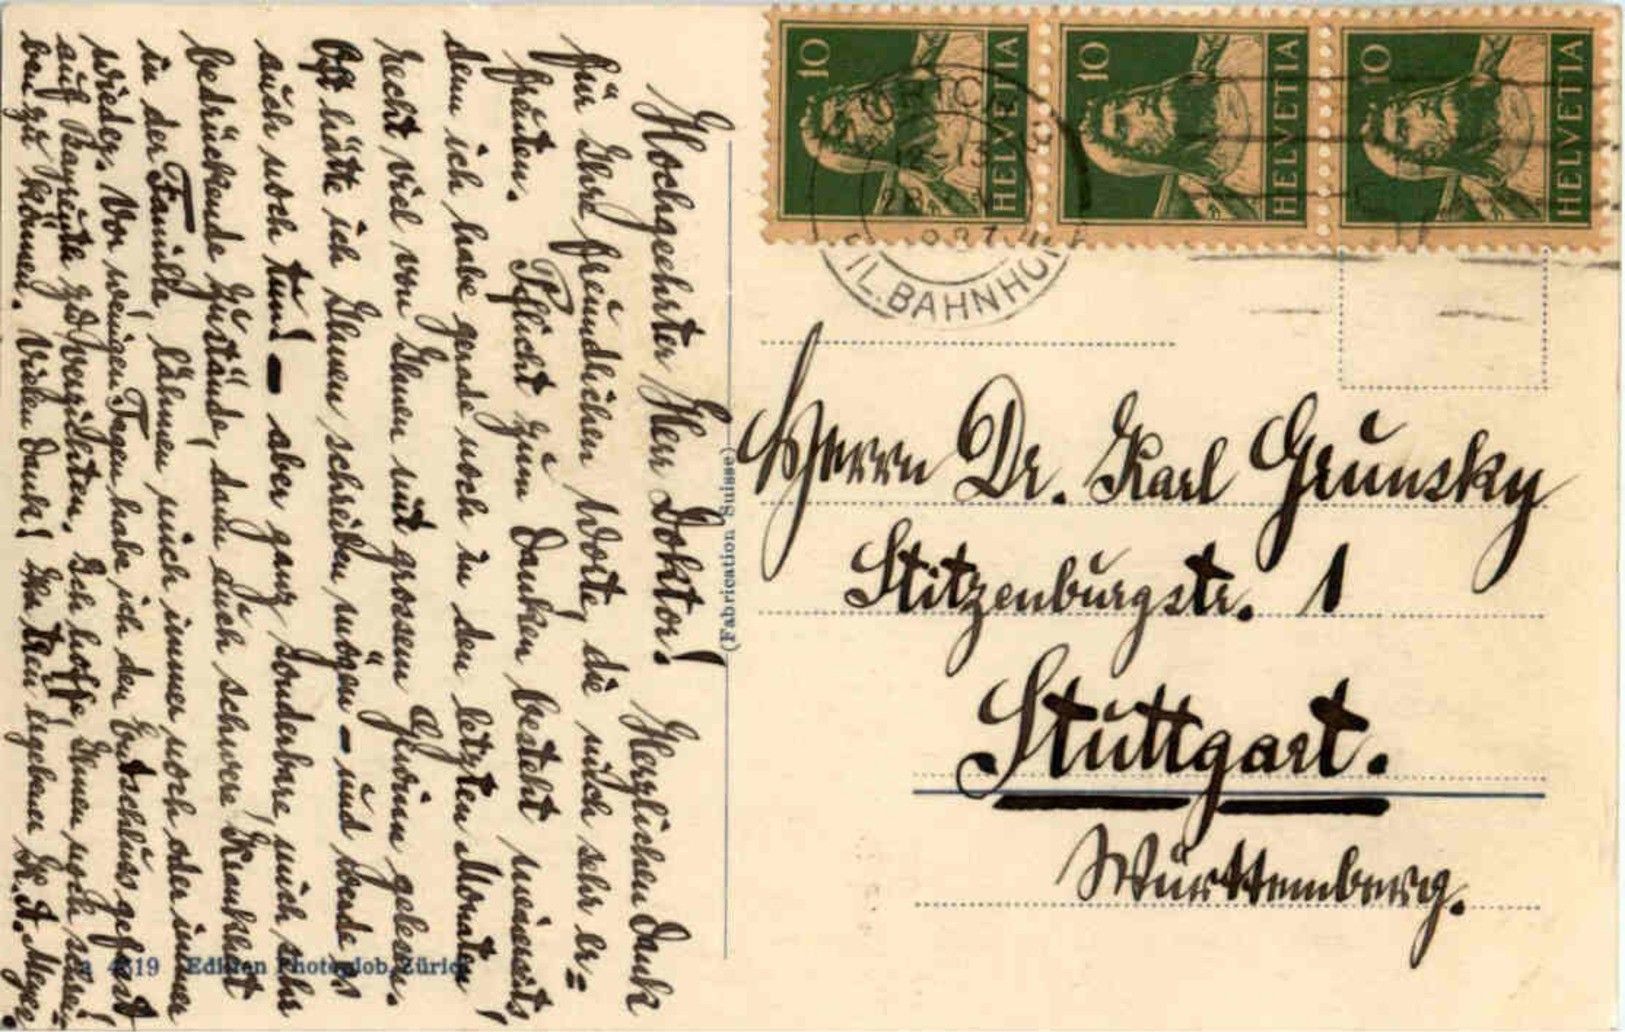 Hochgeehrter Herr Doktor! Herzlichen Dank
für Ihre freundlichen Worte, die mich sehr er=
freuten. Pflicht zum Danken besteht meinerseits,
denn ich habe gerade noch in den letzten Monaten
recht viel von Ihnen mit grossem Gewinn gelesen.
Oft hätte ich Ihnen schreiben mögen – und werde es
auch noch tun! – aber ganz sonderbare mich sehr
bedrückende Zustände, dann auch schwere Krankheit
in der Familie, lähmen mich immer noch oder immer
wieder. Vor wenigen Tagen habe ich den Entschluss gefasst
auf Bayreuth zu verzichten. Ich hoffe, Ihnen noch schrei=
ben zu können. Vielen Dank! Ihr treu ergebener K. A. Meyer.
(Fabrication Suisse)
4819 Edition Photoglob, Zürich
10 HELVETIA
10 HELVETIA
10 HELVETIA
ZÜRICH
FIL. BAHNHOF
Herrn Dr. Karl Grunsky
Stitzenburgstr. 1
Stuttgart.
Württemberg.